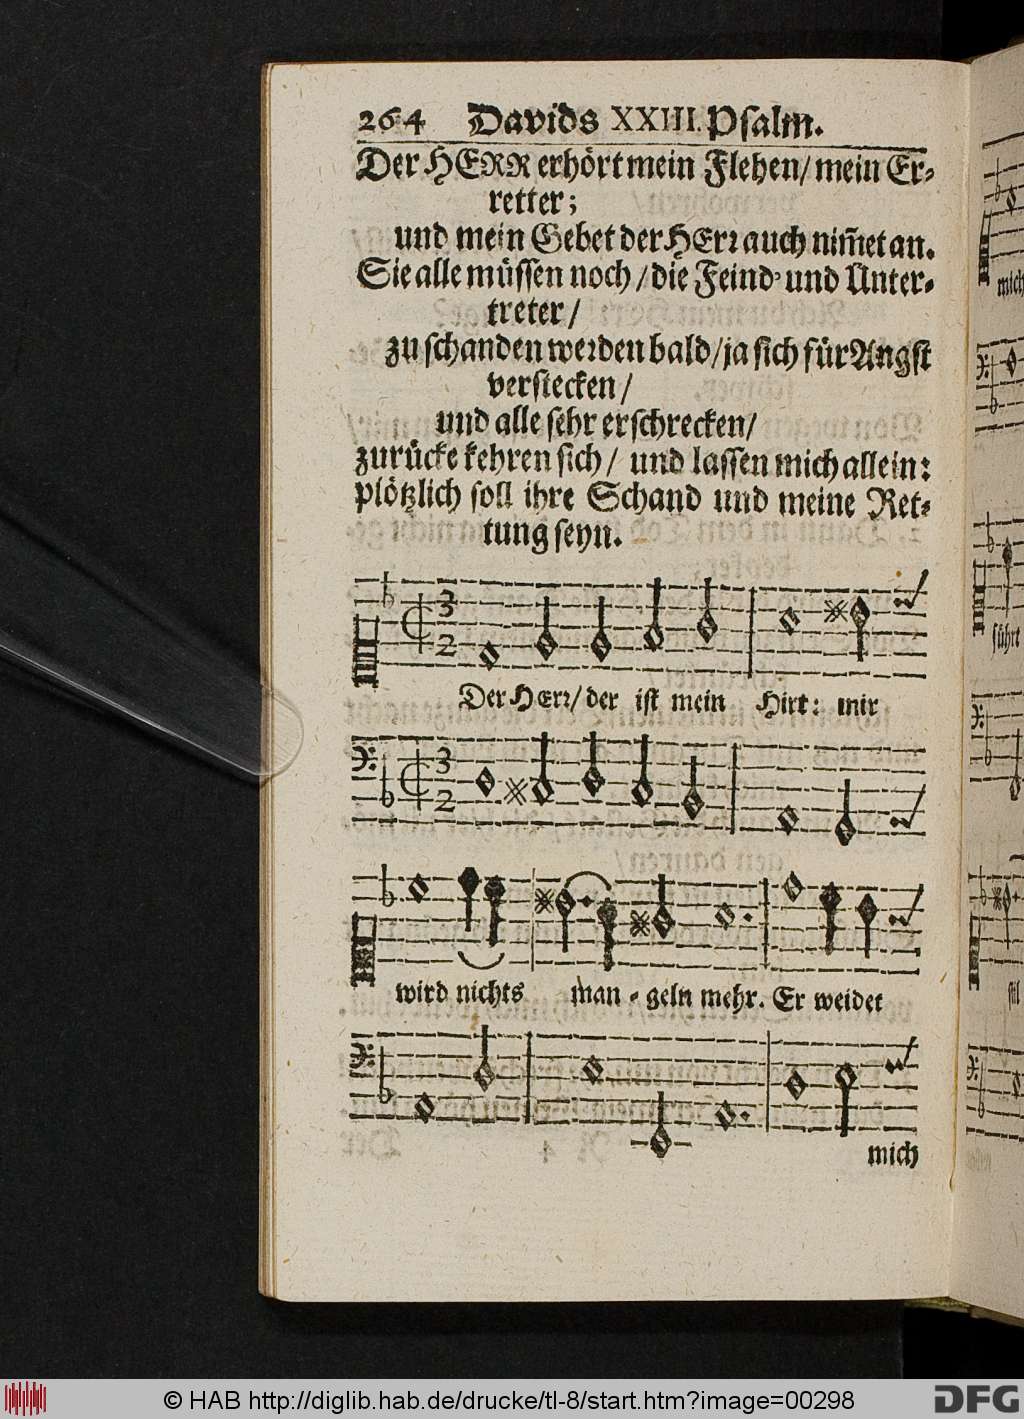 264 Davids XXIII. Psalm.
Der HERR erhört mein Flehen/ mein Er-
retter;
und mein Gebet der HErr auch nim̃et an.
Sie alle müssen noch/ die Feind- und Unter-
treter/
zu schanden werden bald/ ja sich für Angst
verstecken/
und alle sehr erschrecken/
zurücke kehren sich/ und lassen mich allein:
plötzlich soll ihre Schand und meine Ret-
tung seyn.
3
2
Der HErr/ der ist mein Hirt: mir
3
2
wird nichts man-geln mehr. Er weidet
mich
© HAB http://diglib.hab.de/drucke/tl-8/start.htm?image=00298
DFG